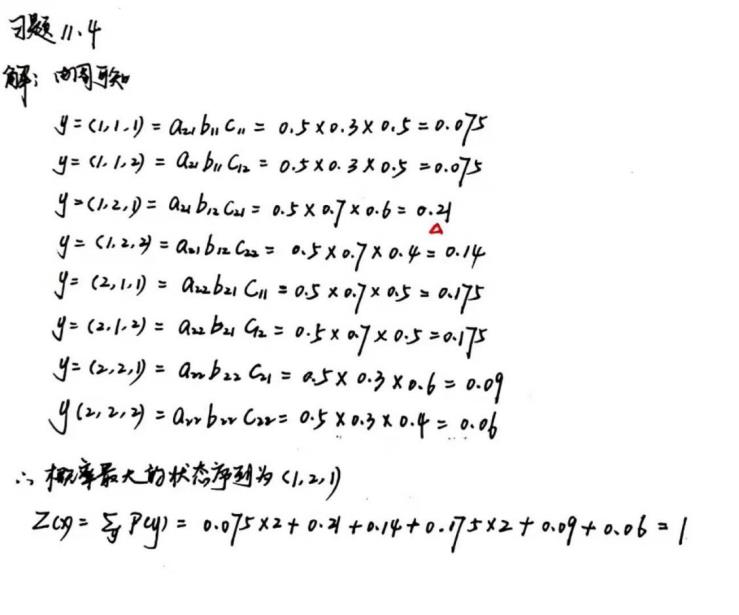 习题 11.4
解: 由图可知
y=(1,1,1) = a₂₁b₁₁c₁₁ = 0.5×0.3×0.5=0.075
y=(1,1,2) = a₂₁b₁₁c₁₂ = 0.5×0.3×0.5=0.075
y=(1,2,1) = a₂₁b₁₂c₂₁ = 0.5×0.7×0.6=0.21
y=(1,2,2) = a₂₁b₁₂c₂₂ = 0.5×0.7×0.4=0.14
y=(2,1,1) = a₂₂b₂₁c₁₁ = 0.5×0.7×0.5=0.175
y=(2,1,2) = a₂₂b₂₁c₁₂ = 0.5×0.7×0.5=0.175
y=(2,2,1) = a₂₂b₂₂c₂₁ = 0.5×0.3×0.6=0.09
y(2,2,2) = a₂₂b₂₂c₂₂ = 0.5×0.3×0.4=0.06
∴ 概率最大的状态序列为 (1,2,1)
Z(x)= Σ_y P(y) = 0.075×2+0.21+0.14+0.175×2+0.09+0.06=1